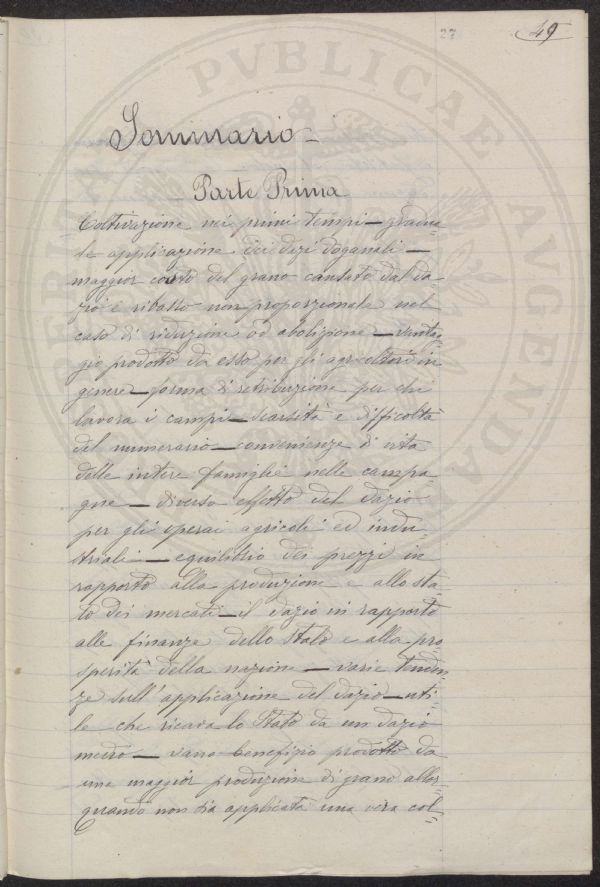 27
49
Sommario —
Parte Prima
Colturazione nei primi tempi — gradua=
le applicazione dei dazi doganali —
maggior costo del grano causato dal da
zio e ribasso non proporzionale nel
caso di riduzione od abolizione — vantag=
gio prodotto da esso per gli agricoltori in
genere — forma di retribuzione per chi
lavora i campi — scarsità e difficoltà
del numerario — convenienze di vita
delle intere famiglie nelle campa
gne — diverso effetto del dazio
per gli operai agricoli ed indu=
striali — equilibrio dei prezzi in
rapporto alla produzione e allo sta=
to dei mercati — il dazio in rapporto
alle finanze dello Stato e alla pro
sperità della nazione — varie tenden=
ze sull'applicazione del dazio — uti=
le che ricava lo Stato da un dazio
medio — vano benefizio prodotto da
una maggior produzione di grano allor=
quando non sia applicata una vera col=
PVBLICAE
AVGENDAE